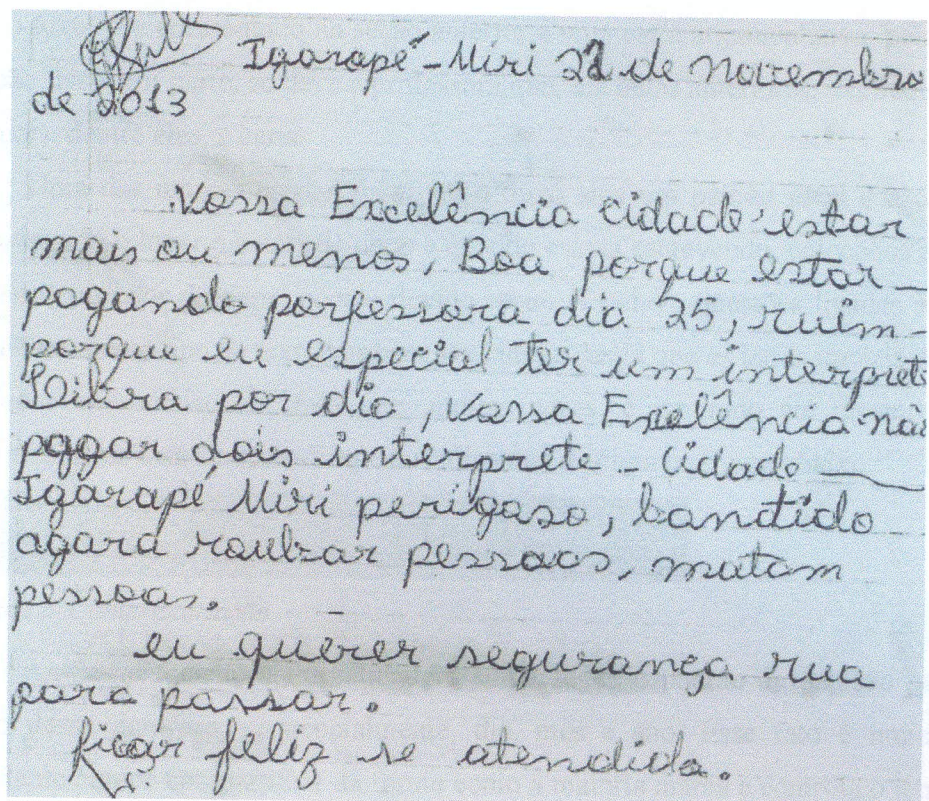 Igarapé-Miri 21 de novembro
de 2013
Vossa Excelência cidade estar
mais ou menos, Boa porque estar
pagando porfessora dia 25, ruim
porque eu especial ter um interprete
Libra por dia, Vossa Excelência não
pagar dois interprete - Cidade
Igarapé Miri perigoso, bandido
agara roubar pessoas, matam
pessoas.
eu querer segurança rua
para passar.
ficar feliz se atendida.